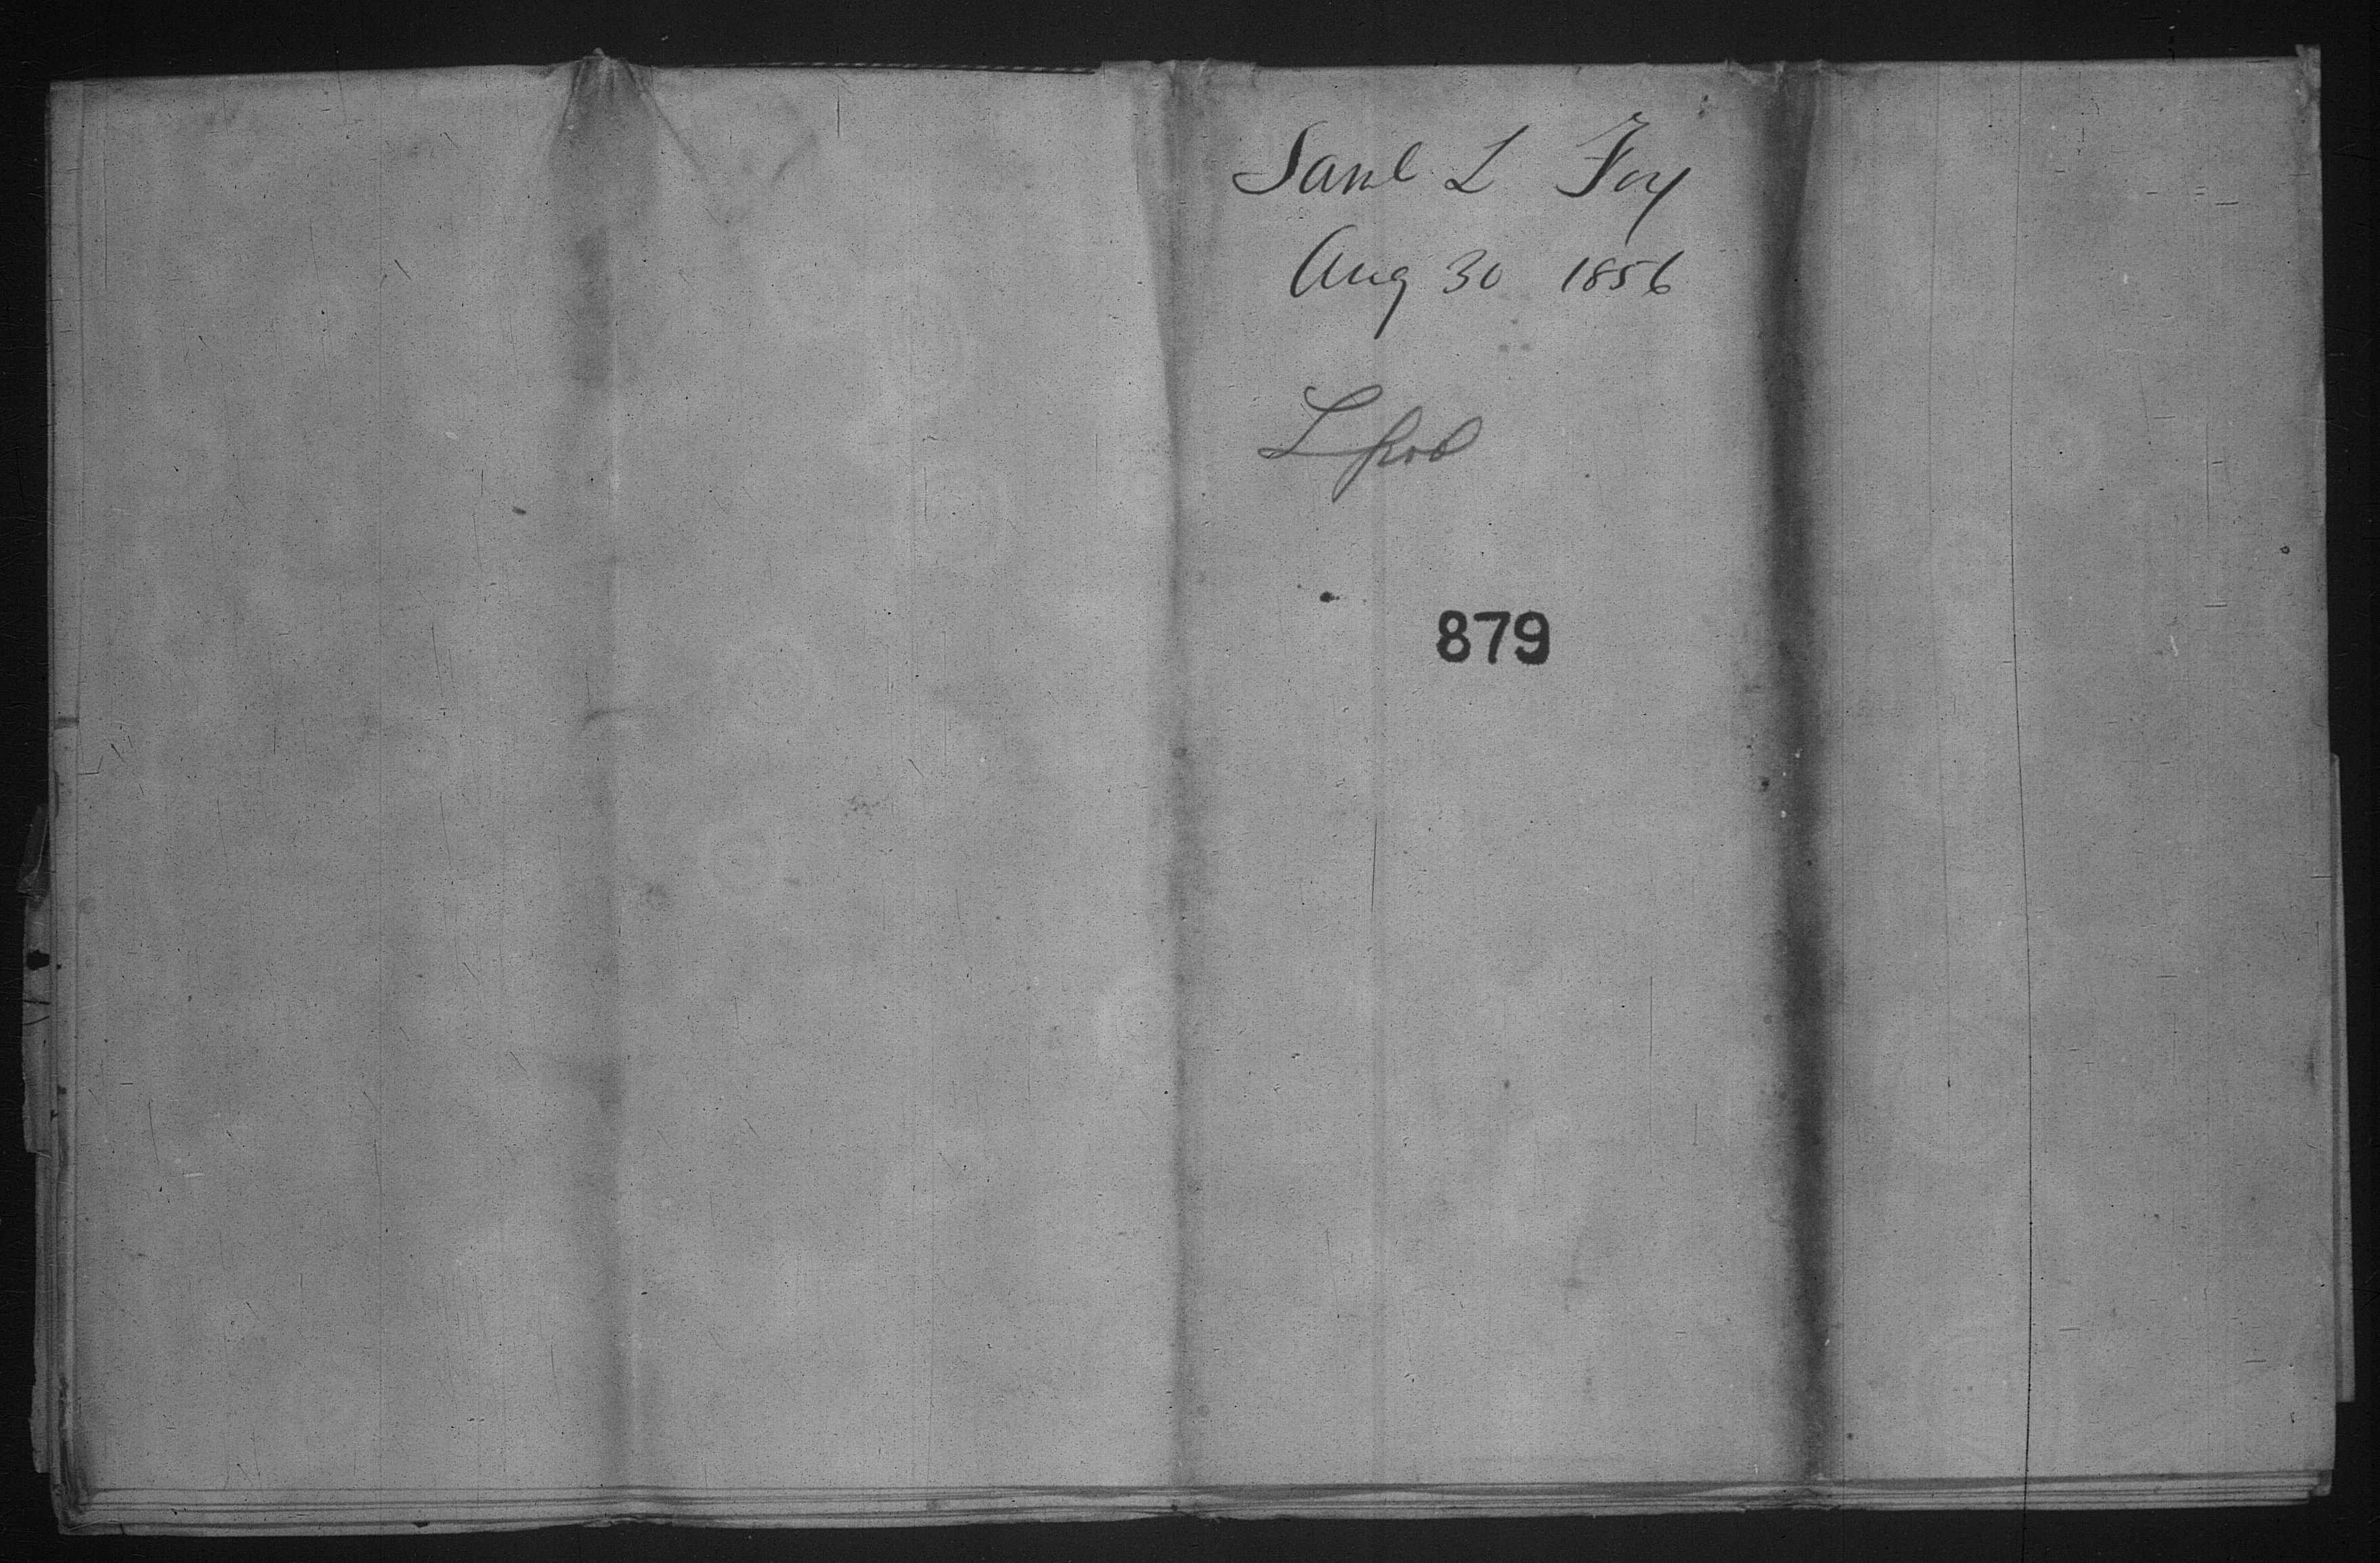 Saml L Foy
Aug 30 1856
L prob
879